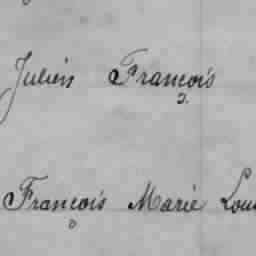 Julien François
François Marie Lou